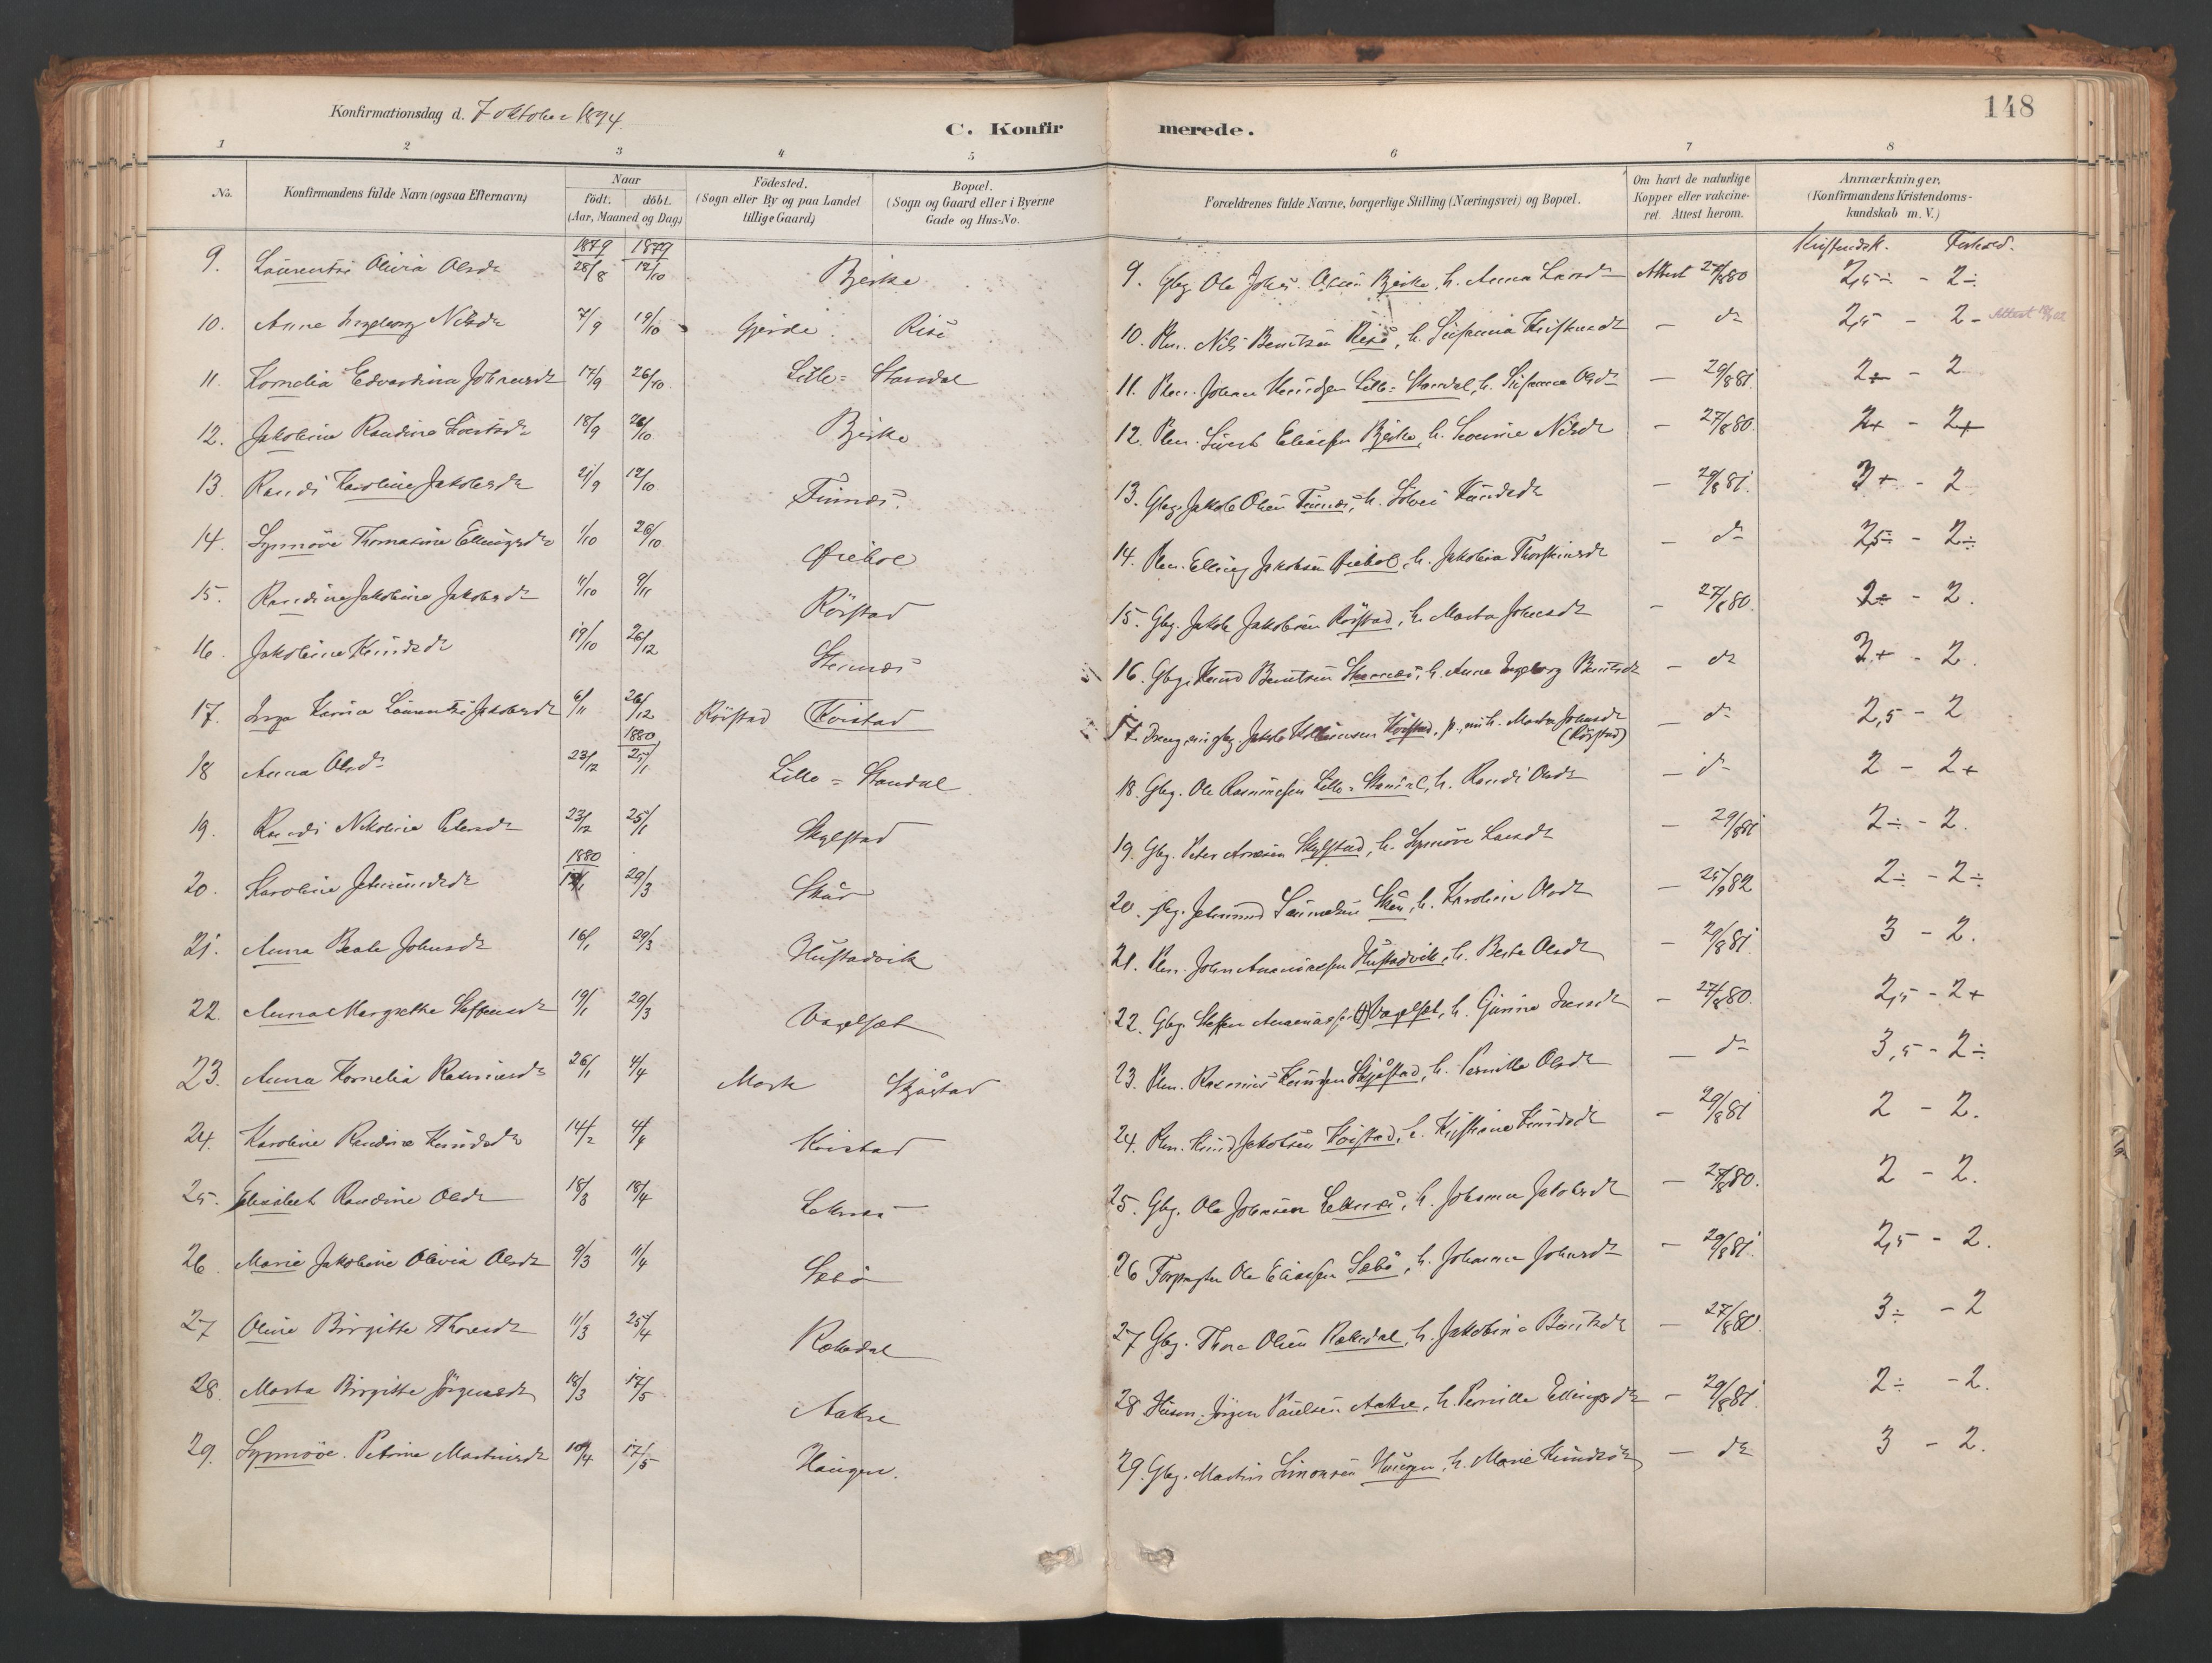 148
Konfirmationsdag d. 7 oktober 1894.
C. Konfirmerede.
1 2 3 4 5 6 7 8
No.
Konfirmandens fulde Navn (ogsaa Efternavn)
Naar
födt. döbt.
(Aar, Maaned og Dag)
Födested.
(Sogn eller By og paa Landet
tillige Gaard)
Bopæl.
(Sogn og Gaard eller i Byerne
Gade og Hus-No.
Forældrenes fulde Navne, borgerlige Stilling (Næringsvei) og Bopæl.
Om havt de naturlige
Kopper eller vakcine-
ret. Attest herom.
Anmærkninger,
(Konfirmandens Kristendoms-
kundskab m. V.)
Kristendsk. Forhold.
1879 1879
9. Laurentse Olivia Olsdr 28/8 12/10 Bjerke 9. Gbg Ole Johs. Olsen Bjerke, h. Anna Larsdr Attest 27/8 80 2,5÷ - 2÷
10. Anne Ingeborg Nilsdr 7/9 19/10 Gjerde Rise 10. Plm. Nils Bentsen Rise, h. Stefania Kristensdr — do 2,5 - 2 -
11. Kornelia Edvardina Johansdr 17/9 26/10 Lille= Standal 11. Plm. Johan Knudsen Lille=Standal, h. Stefania Olsdr — 29/8 81 2÷ - 2
12. Jakobine Randine Sivertsdr 18/9 26/10 Bjerke 12. Plm. Sivert Eliassen Bjerke, h. Lovise Nilsdr — 27/8 80. 2+ - 2+
13. Randi Karoline Jakobsdr 21/9 12/10 Finnes. 13. Gbg. Jakob Olsen Finnes, h. Sölvei Knudsdr — 29/8 81. 3+ - 2
14. Synnöve Thomasine Ellingsdr 1/10 26/10 Öiebøe 14. Plm. Elling Jakobsen Øiebøe, h. Jakobia Thorsteinsdr — do 2,5÷ - 2÷
15. Randine Jakobine Jakobsdr 11/10 9/11 Rörstad 15. Gbg. Jakob Jakobsen Rörstad, h. Marta Johnsdr — 27/8 80. 2÷ - 2.
16. Jakobine Knudsdr 19/10 26/12 Stennes 16. Gbg. Knud Bentsen Stennes, h. Anna Ingeborg Bentsdr — do 3+ - 2.
17. Inga Karia Laurentse Jakobsdr 6/11 26/12 Rörstad Kvistad 17. Jakob Kvistad, Marta Johnsdr — do 2,5 - 2
(Rörstad)
1880
18 Anna Olsdr 23/12 25/1 Lille = Standal 18. Gbg. Ole Rasmussen Lille=Standal, h. Randi Olsdr — do 2 - 2+
19. Randi Nikoline Petersdr 23/12 25/1 Skylstad 19. Gbg. Peter Arnesen Skylstad, h. Synnöve Larsdr — 29/8 81 2÷ - 2.
1880
20. Karoline Jetmundsdr 29/3 Skår 20. Gbg. Jetmund Skår, h. Karoline Olsdr — 25/9 82 2÷ - 2÷
21. Anna Beate Johnsdr 16/1 29/3 Hustadvik 21. Plm. John Hustadvik, h. Berte Olsdr — 29/8 81. 3 - 2.
22. Anna Margrethe Steffensdr 19/1 29/3 Vagelsæt 22. Gbg. Steffen Vagelsæt, h. Gurine — 27/8 80. 2,5 - 2+
23. Anna Kornelia Rasmusdr 26/1 4/4 Mork Skjåstad 23. Plm. Rasmus Knudsen Skjåstad, h. Pernille Olsdr — do 3,5 - 2÷
24. Karoline Randine Knudsdr 14/2 4/4 Kvistad 24. Plm. Knud Jakobsen Kvistad, h. Kristiane Knudsdr — 29/8 81 2 - 2.
25. Elisabet Randine Olsdr 18/3 18/4 Leknes 25. Gbg. Ole Johnsen Leknes, h. Johanna Jakobsdr — 27/8 80. 2 - 2.
26. Marie Jakobine Olivia Olsdr 9/3 11/4 Sæbö 26 Forpagter Ole Eliassen Sæbö, h. Johanna Johnsdr — 29/8 81. 2,5 - 2.
27 Oline Birgitte Thoresdr 11/3 25/4 Rekkedal 27 Gbg. Thore Olsen Rekkedal, h. Jakobine Bentsdr — 27/8 80 3÷ - 2
28. Marta Birgitte Jörgensdr 18/3 17/5 Aakre 28 Husm. Jörgen Paulsen Aakre, h. Pernille Ellingsdr — 29/8 81. 2÷ - 2.
29. Synnöve Petrine Martinsdr 10/4 17/5 Haugen. 29. Gbg. Martin Simonsen Haugen, h. Marie Knudsdr — do 3 - 2.